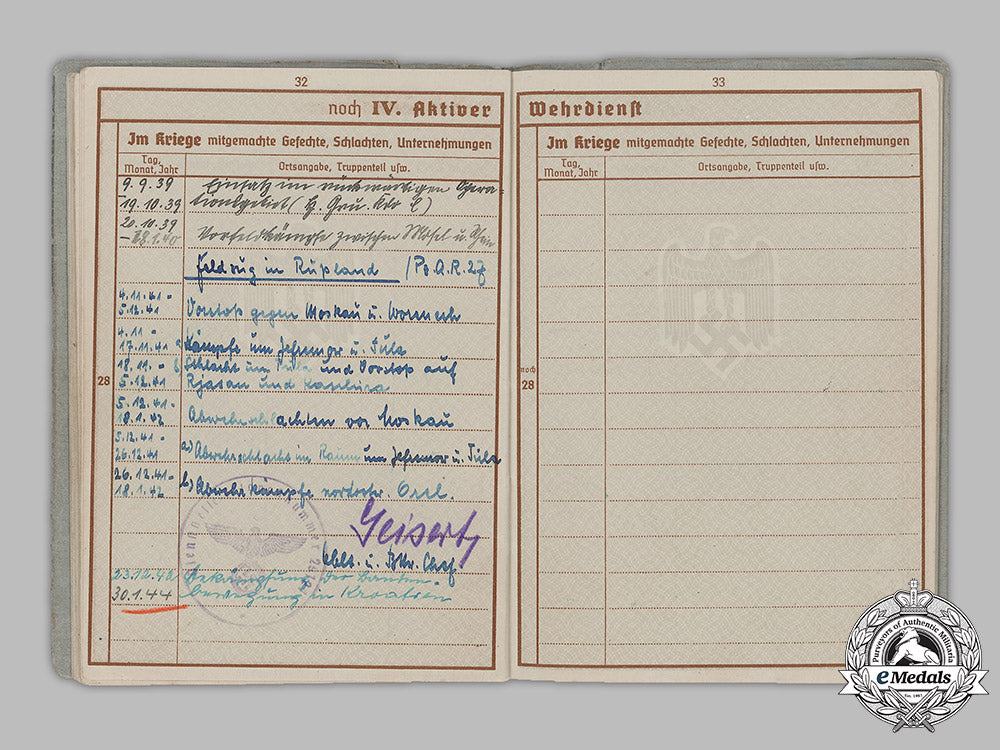 32
noch IV. Aktiver
Im Kriege mitgemachte Gefechte, Schlachten, Unternehmungen
Tag, Monat, Jahr
Ortsangabe, Truppenteil usw.
9.9.39 Einsatz im rückwärtigen Opera-
19.10.39 tionsgebiet (H. Gru. Kdo C)
20.10.39
Vorfeldkämpfe zwischen Mosel u. Rhein
Feldzug in Rußland (Pz.A.R.27
4.11.41 -
5.12.41 Vorstoß gegen Moskau u. Woronesh
4.11 -
17.11.41 Kämpfe um Jefremow u. Tula
18.11. - Schlacht um Tula und Vorstoß auf
5.12.41 Rjasan und Kaschira
5.12.41 -
18.1.42 Abwehrschlachten vor Moskau
5.12.41 -
26.12.41 a) Abwehrschlacht im Raum um Jefremow u. Tula
26.12.41 -
18.1.42 b) Abwehrkämpfe nordostw. Orel.
Geisert
Oblt. u. Bttr. Chef
23.12.42 Bekämpfung der Banden-
30.1.44 bewegung in Kroatien
28
33
Wehrdienst
Im Kriege mitgemachte Gefechte, Schlachten, Unternehmungen
Tag, Monat, Jahr
Ortsangabe, Truppenteil usw.
noch
28
Purveyors of Authentic Militaria
eMedals